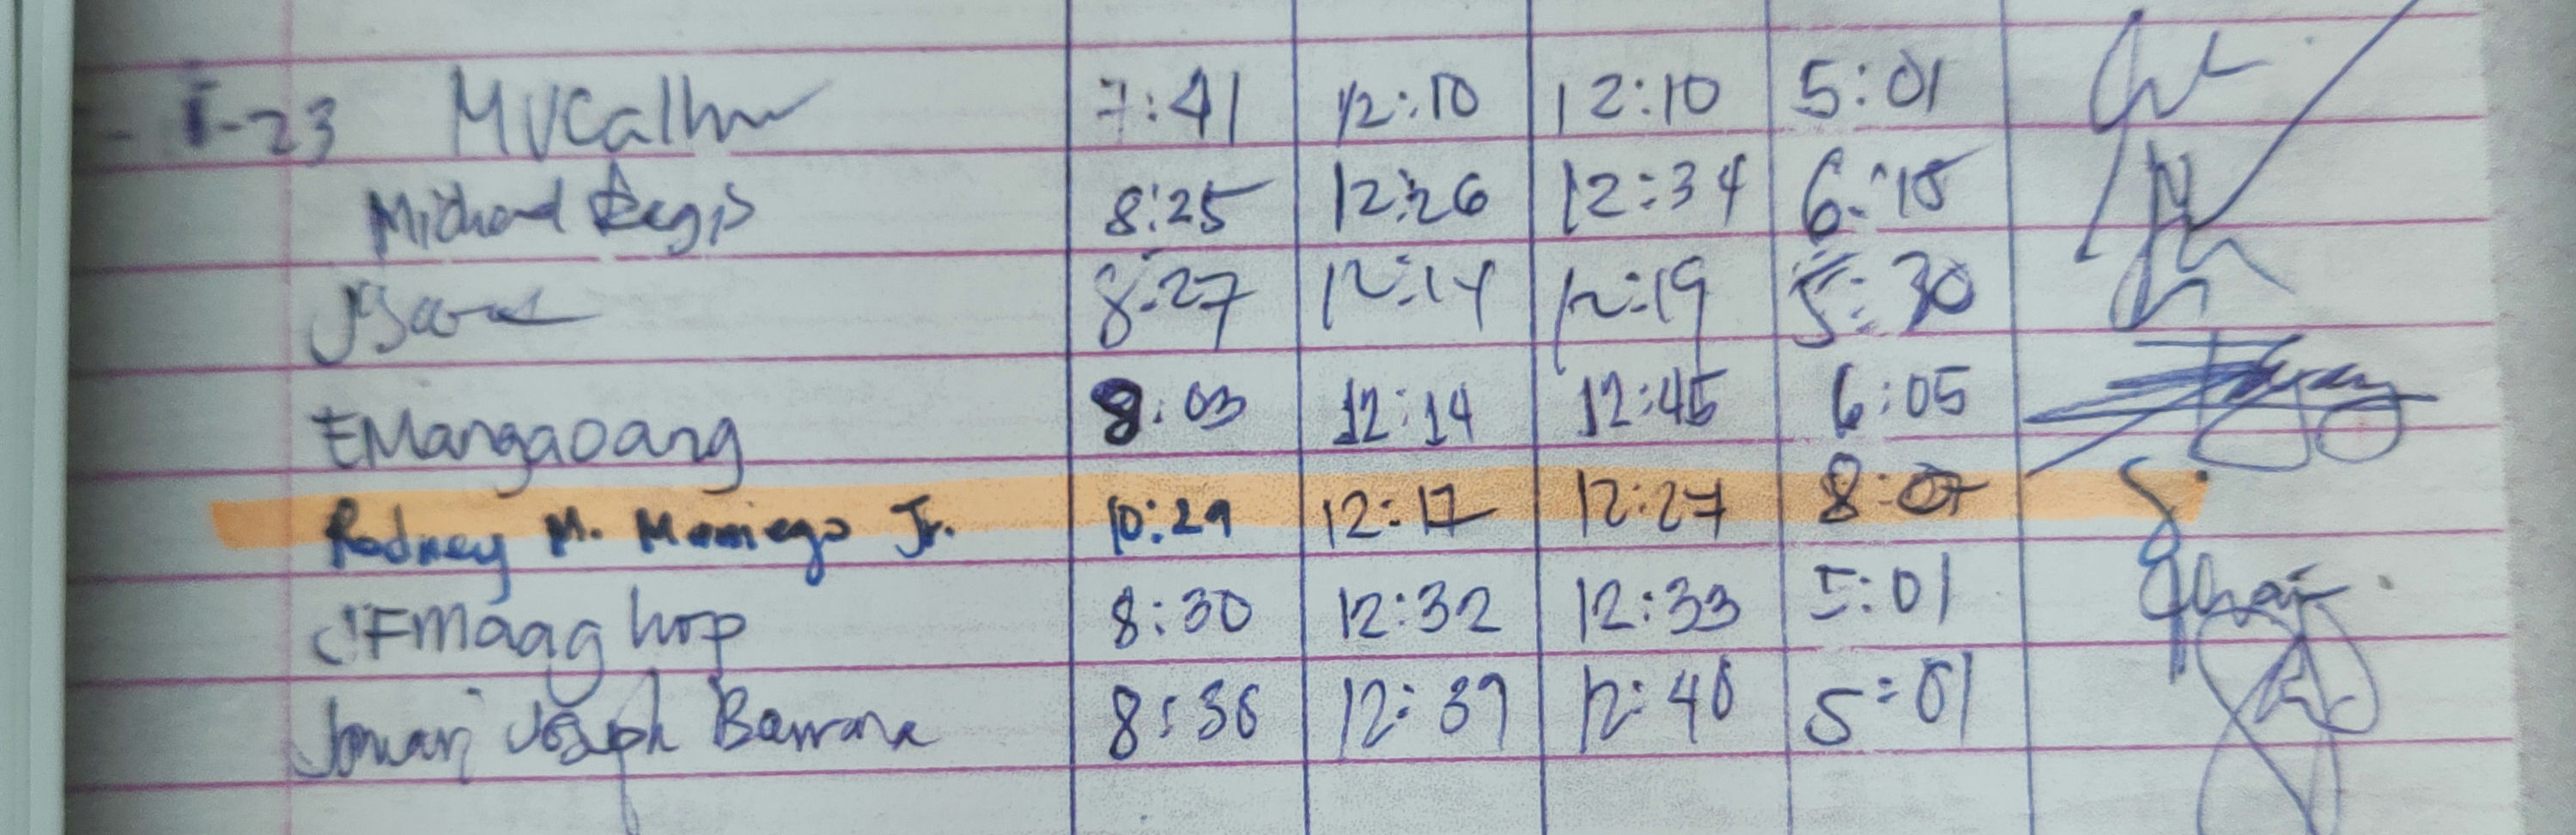 -23 MVCalhu 7:41 12:10 12:10 5:01
Michael Regis 8:25 12:26 12:34 6:15
8:27 12:14 12:19 5:30
EMangaoang 8:03 12:14 12:45 6:05
Rodney M. Momiego Jr. 10:29 12:17 12:27 8:07
CFMaaghop 8:30 12:32 12:33 5:01
Jomari Joseph Barrona 8:36 12:39 12:40 5:01